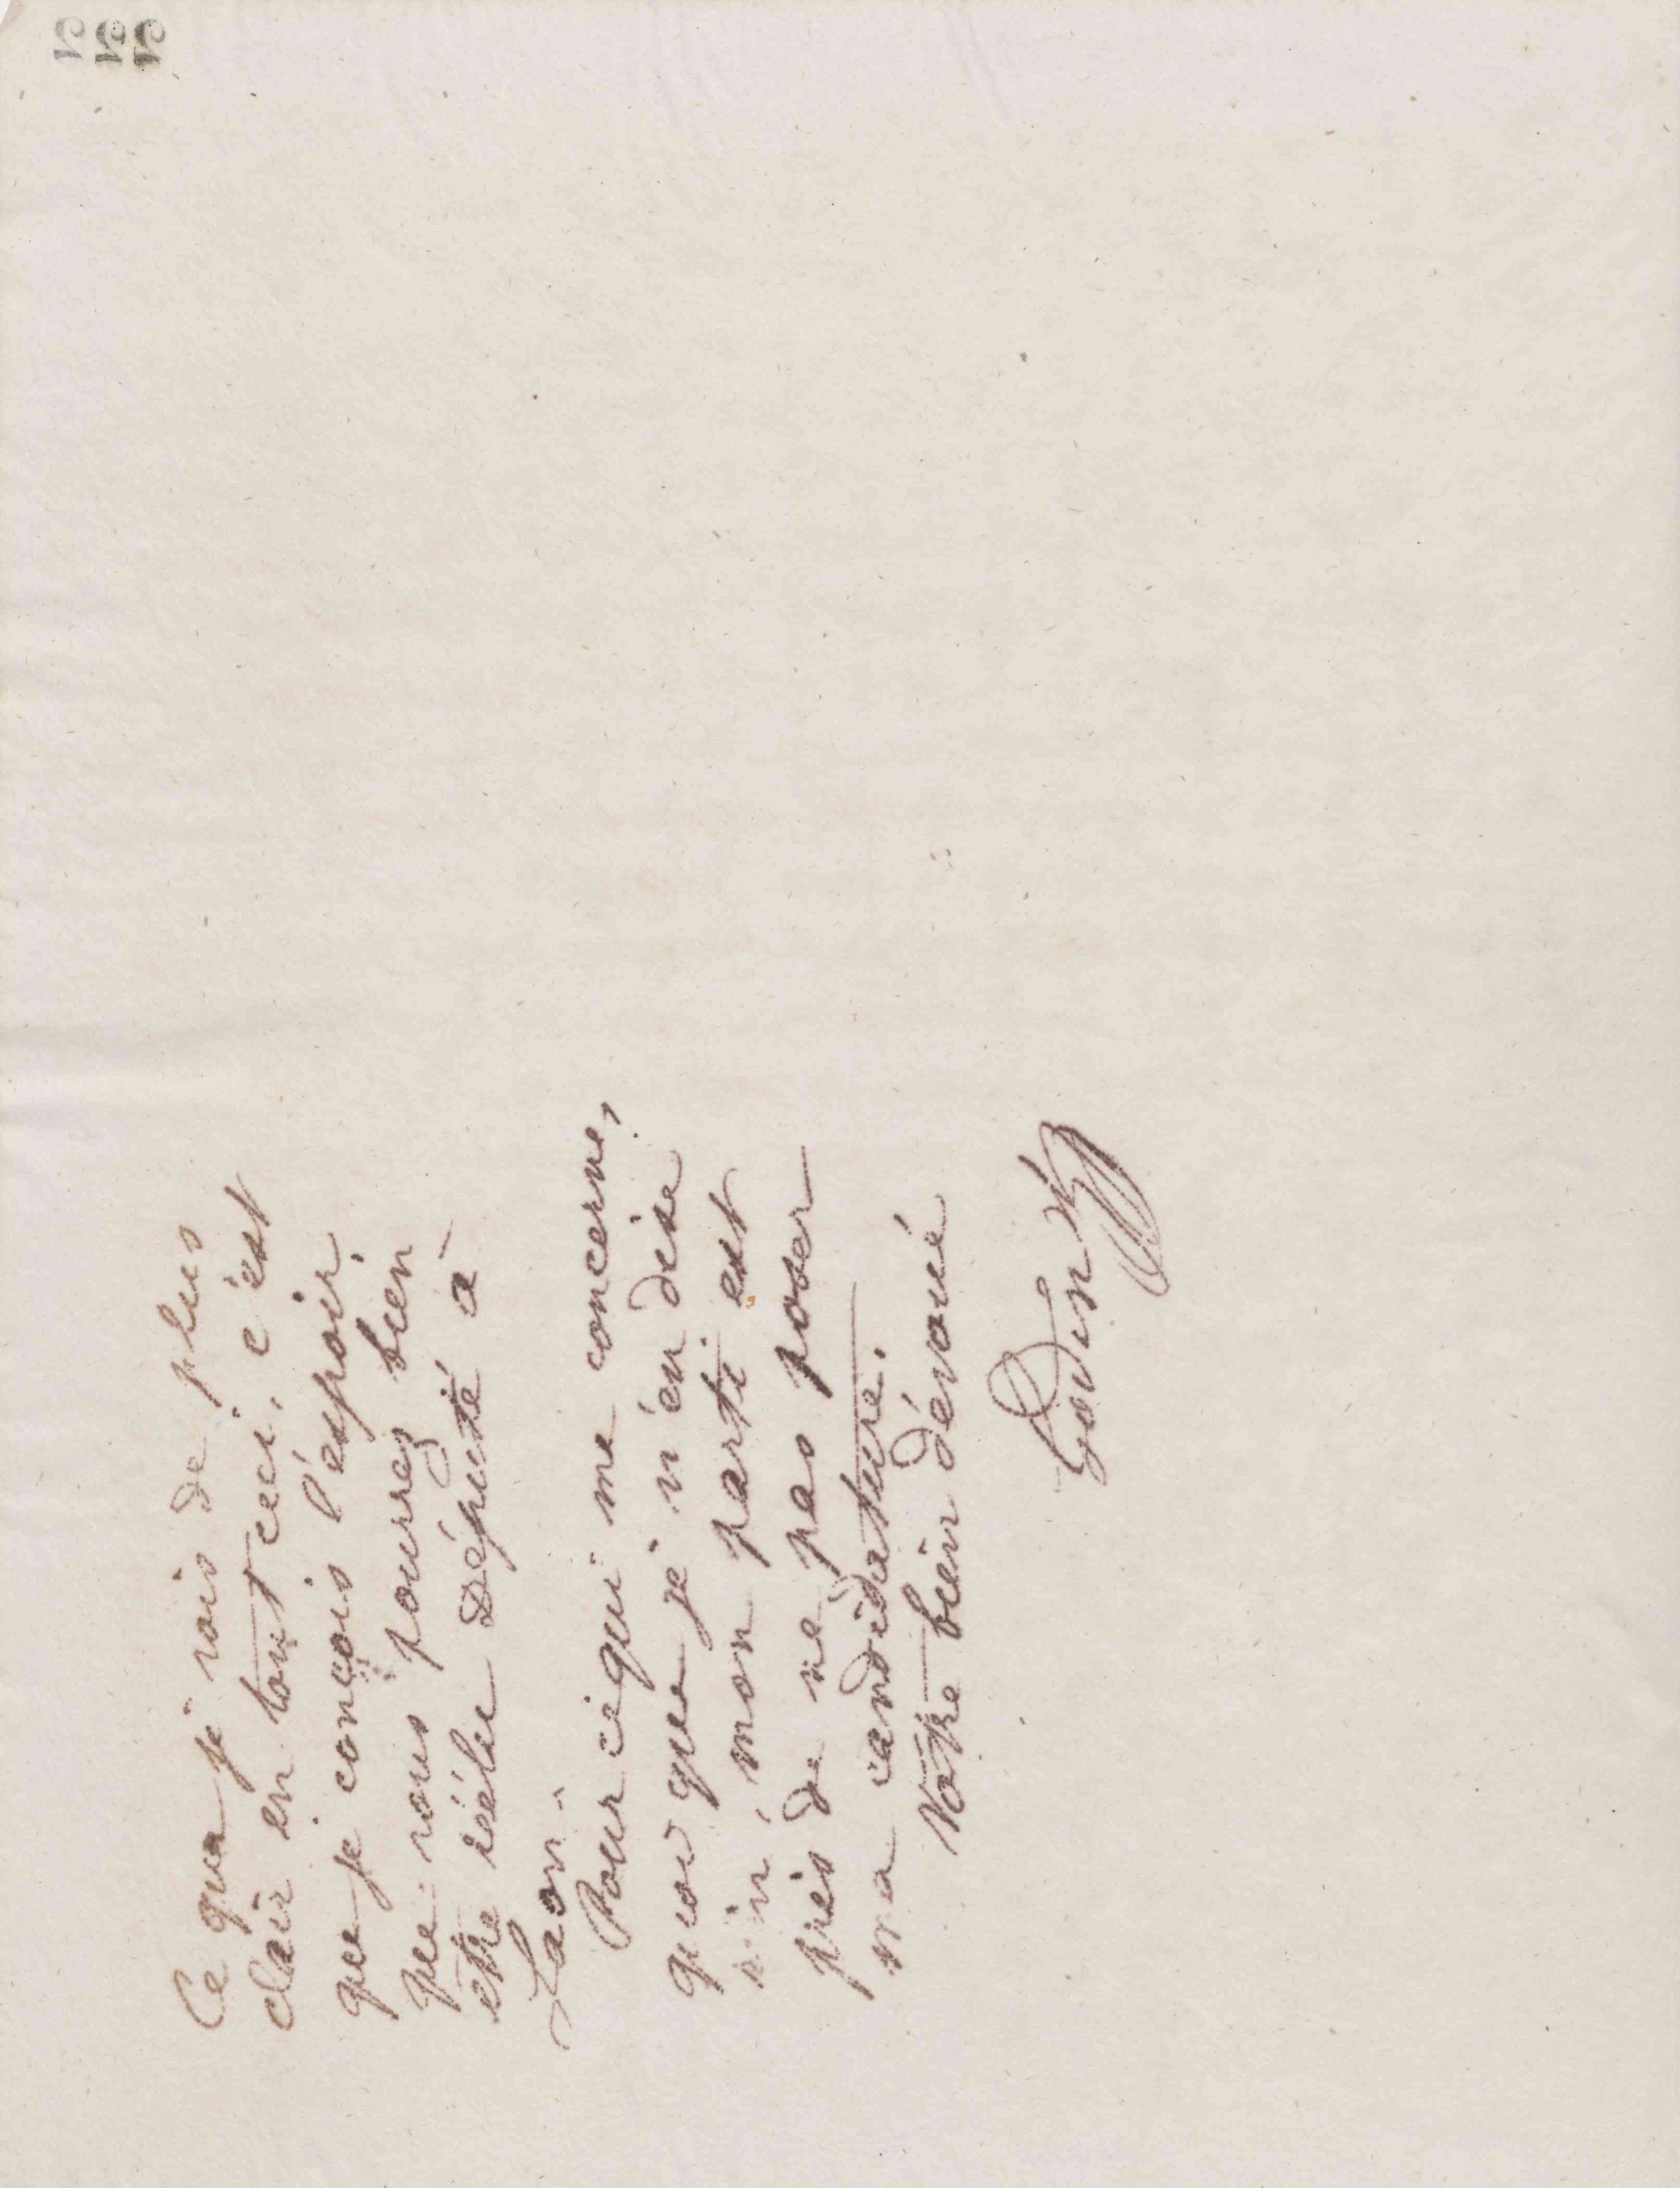 Ce que je vois de plus
clair en tout ceci, c'est
que je conçois l'espoir.
que vous pourrez bien
être réélu Député à
Laon.
Pour ce qui me concerne,
quoi que je n'en dise
rien, mon parti est
pris de ne pas poser
ma candidature.
Votre bien dévoué
Godin